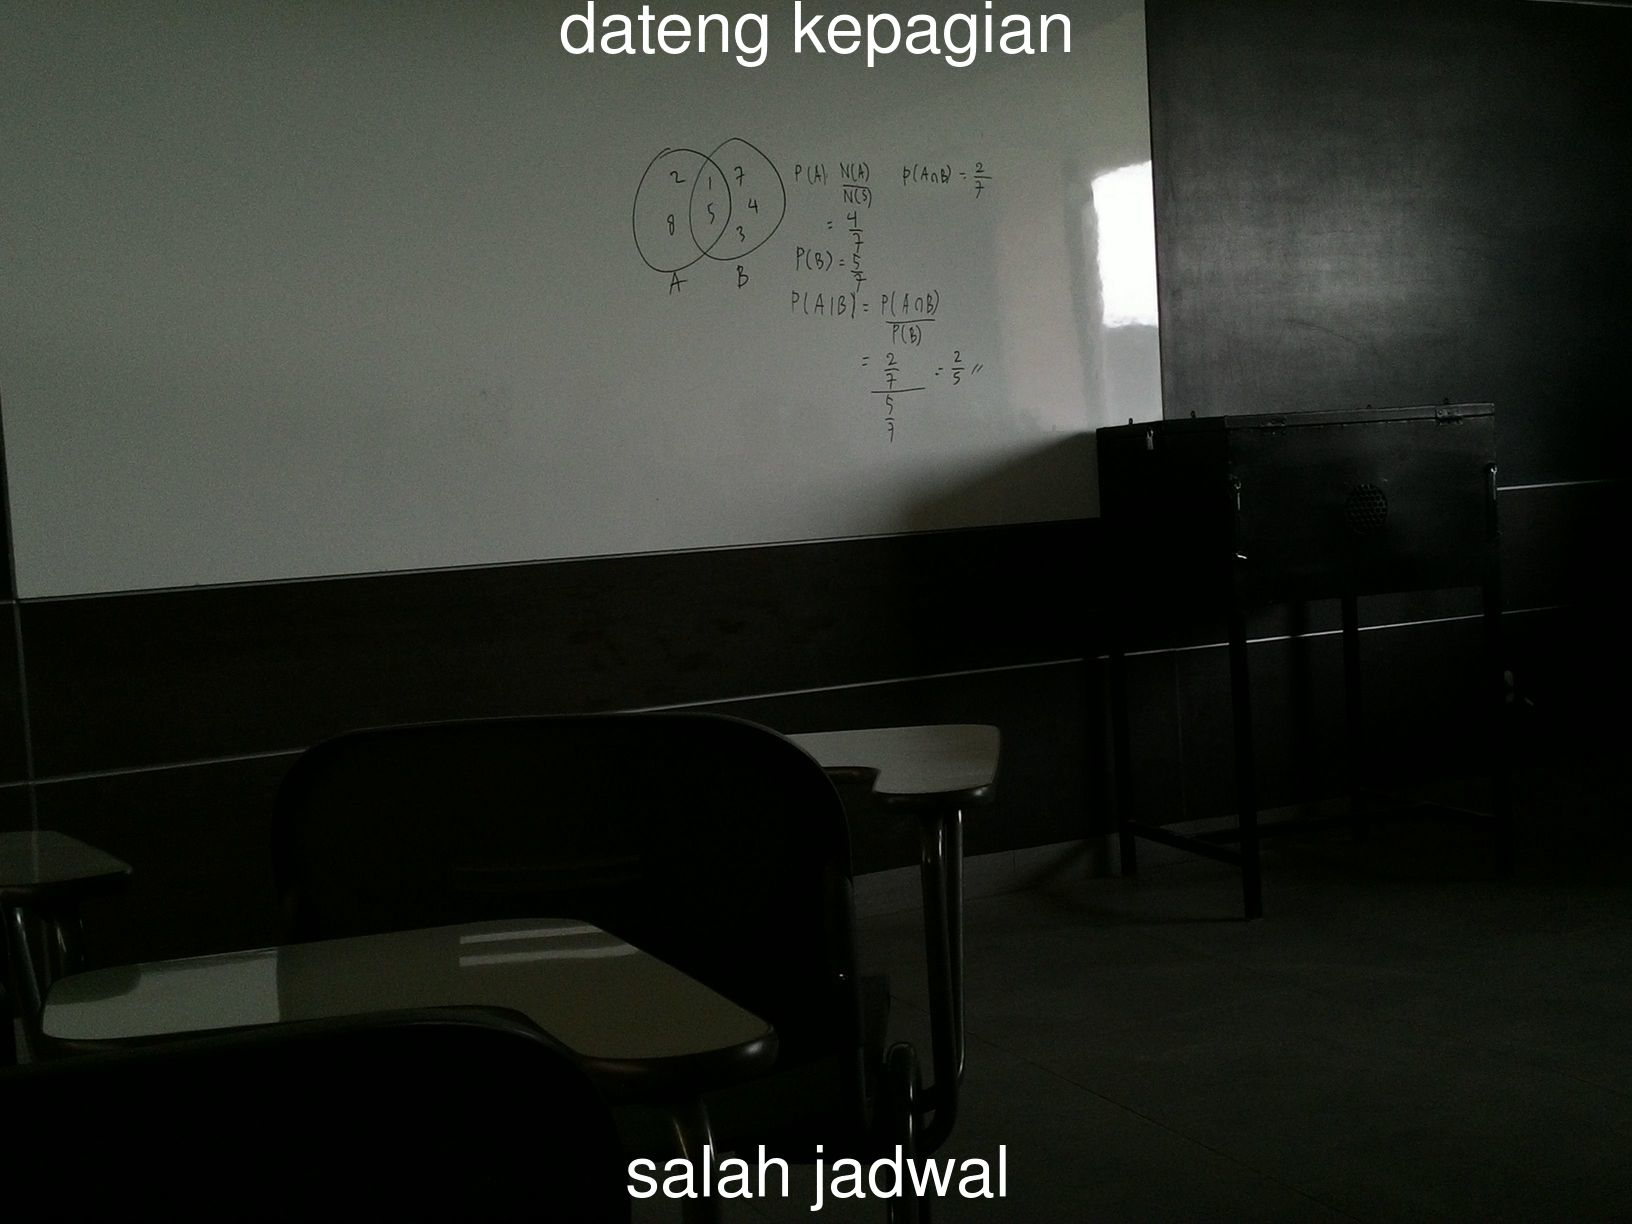 dateng kepagian
2 1 7
8 5 4
3
A B
P(A) N(A)/N(S) P(A∩B) = 2/7
= 4/7
P(B) = 5/7
P(A|B) = P(A∩B)/P(B)
= 2/7 / 5/7 = 2/5 //
salah jadwal